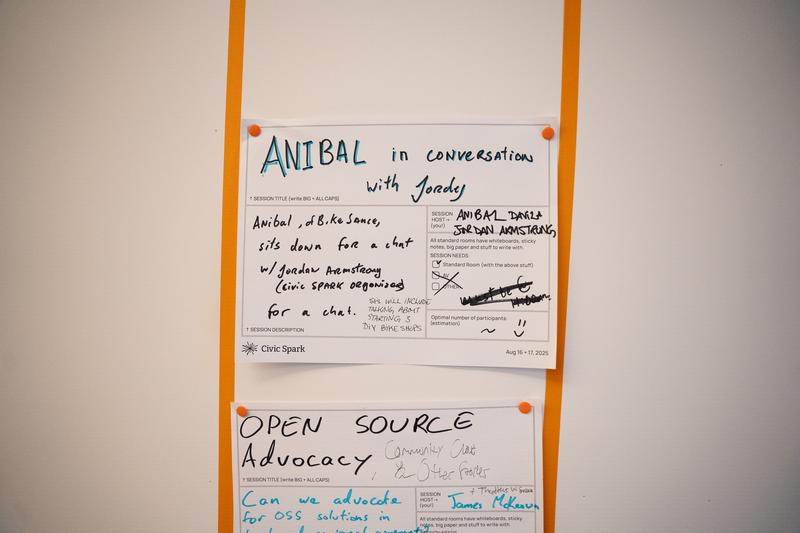 ANIBAL in CONVERSATION
with Jordy
↑ SESSION TITLE (write BIG + ALL CAPS)
Anibal, of BikeSauce,
sits down for a chat
w/ Jordan Armstrong
(civic SPARK organizer)
for a chat.
THIS WILL INCLUDE
TALKING ABOUT
STARTING 3
DIY BIKE SHOPS
↑ SESSION DESCRIPTION
SESSION
HOST→
(you!)
ANIBAL DAVILA
JORDAN ARMSTRONG
All standard rooms have whiteboards, sticky
notes, big paper and stuff to write with.
SESSION NEEDS
Standard Room (with the above stuff)
AV
OTHER
Optimal number of participants:
(estimation)
~
Civic Spark
Aug 16 + 17, 2025
OPEN SOURCE
Advocacy,
Community Chat
& Other Forks
↑ SESSION TITLE (write BIG + ALL CAPS)
Can we advocate
for OSS solutions in
SESSION
HOST→
(you!)
James McKeown
All standard rooms have whiteboards, sticky
notes, big paper and stuff to write with.